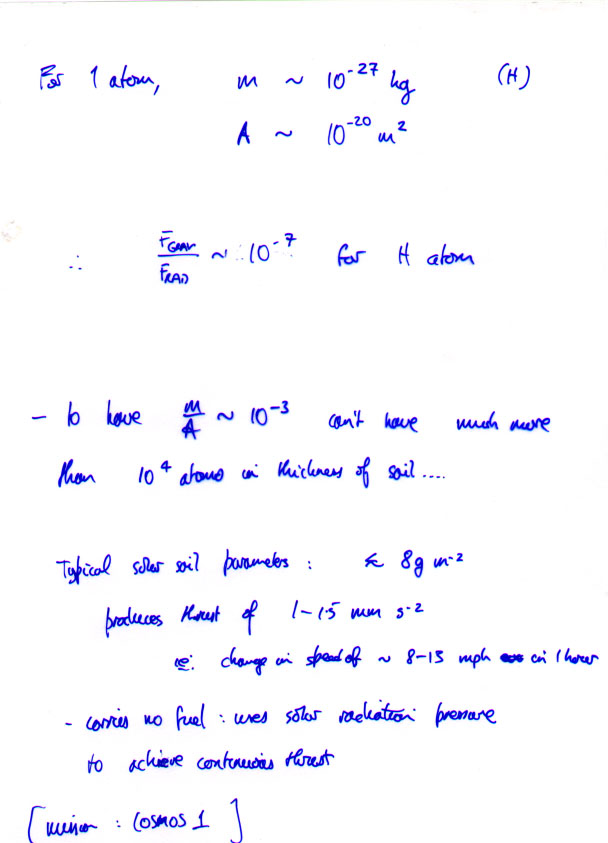 For 1 atom, m ~ 10⁻²⁷ kg (H)
A ~ 10⁻²⁰ m²
∴ F_GRAV/F_RAD ~ 10⁻⁷ for H atom
- to have m/A ~ 10⁻³ can't have much more
than 10⁴ atoms in thickness of sail....
Typical solar sail parameters : ≲ 8g m⁻²
produces thrust of 1-1.5 mm s⁻²
ie: change in speed of ~ 8-13 mph in 1 hour
- carries no fuel : uses solar radiation pressure
to achieve continuous thrust
[mission : COSMOS 1]